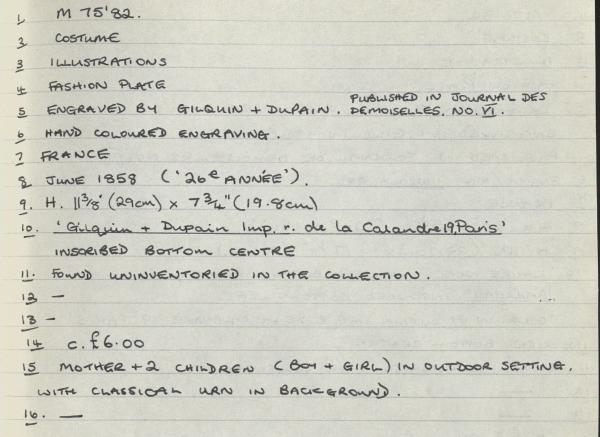 1. M 75'82.
2 COSTUME
3 ILLUSTRATIONS
4 FASHION PLATE
5 ENGRAVED BY GILQUIN + DUPAIN. PUBLISHED IN JOURNAL DES DEMOISELLES, NO. VI.
6 HAND COLOURED ENGRAVING.
7 FRANCE
8 JUNE 1858 ('26e ANNÉE').
9. H. 11 3/8" (29cm) x 7 3/4" (19.8cm)
10. 'Gilquin + Dupain Imp. r. de la Calandre 19, Paris'
INSCRIBED BOTTOM CENTRE
11. FOUND UNINVENTORIED IN THE COLLECTION.
12 —
13 —
14 c. £6.00
15 MOTHER + 2 CHILDREN (BOY + GIRL) IN OUTDOOR SETTING,
WITH CLASSICAL URN IN BACKGROUND.
16. —